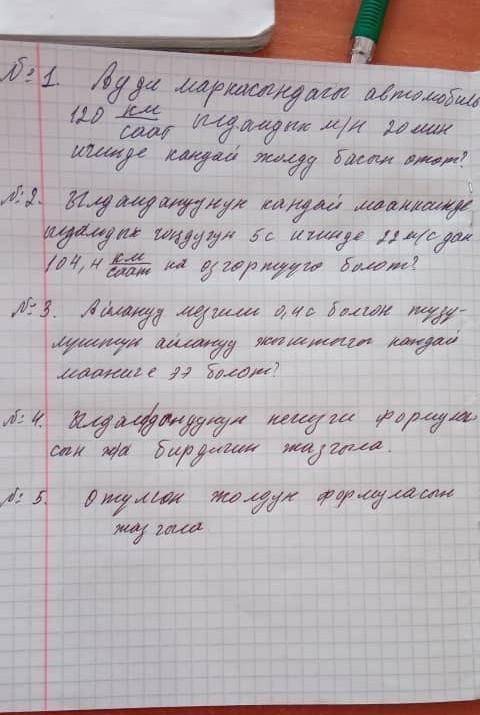 № 1. Ауди маркасындагы автомобиль
120 км/саат ылдамдык м/н 20 мин
ичинде кандай жолду басып отот?
№ 2. Ылдамдануунун кандай маанисинде
ылдамдык чоңдугун 5 с ичинде 22 м/с дан
104,4 км/саат ка озгортууго болот?
№ 3. Айлануу мезгили 0,4 с болгон тузу-
луштун айлануу жыштыгы кандай
мааниге ээ болот?
№ 4. Ылдамдануунун негизги формула-
сын ж/а бирдигин жазгыла.
№ 5. Отулгон жолдун формуласын
жазгыла